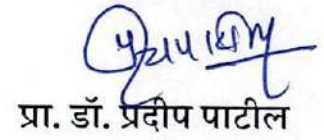 प्रा. डॉ. प्रदीप पाटील